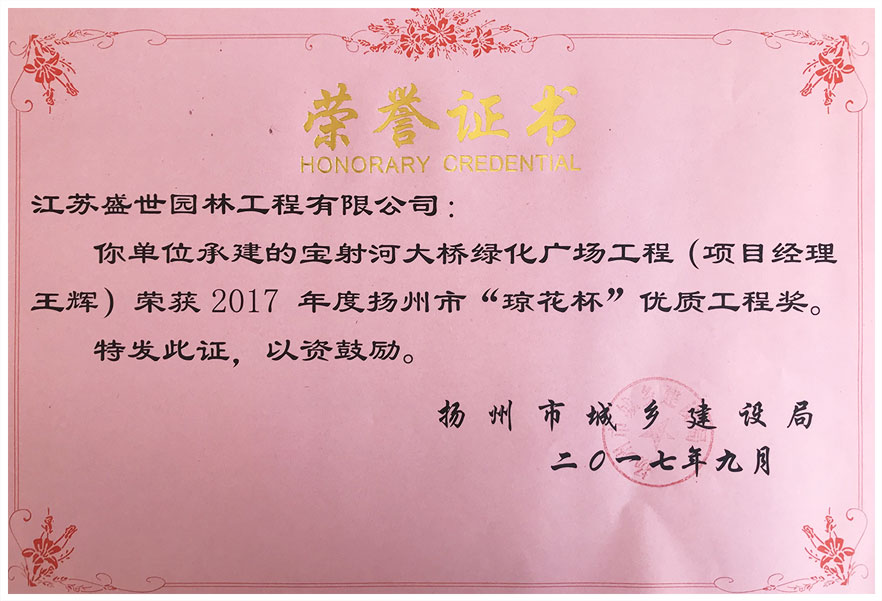 荣誉证书
HONORARY CREDENTIAL
江苏盛世园林工程有限公司：
你单位承建的宝射河大桥绿化广场工程（项目经理
王辉）荣获 2017 年度扬州市“琼花杯”优质工程奖。
特发此证，以资鼓励。
扬州市城乡建设局
二〇一七年九月